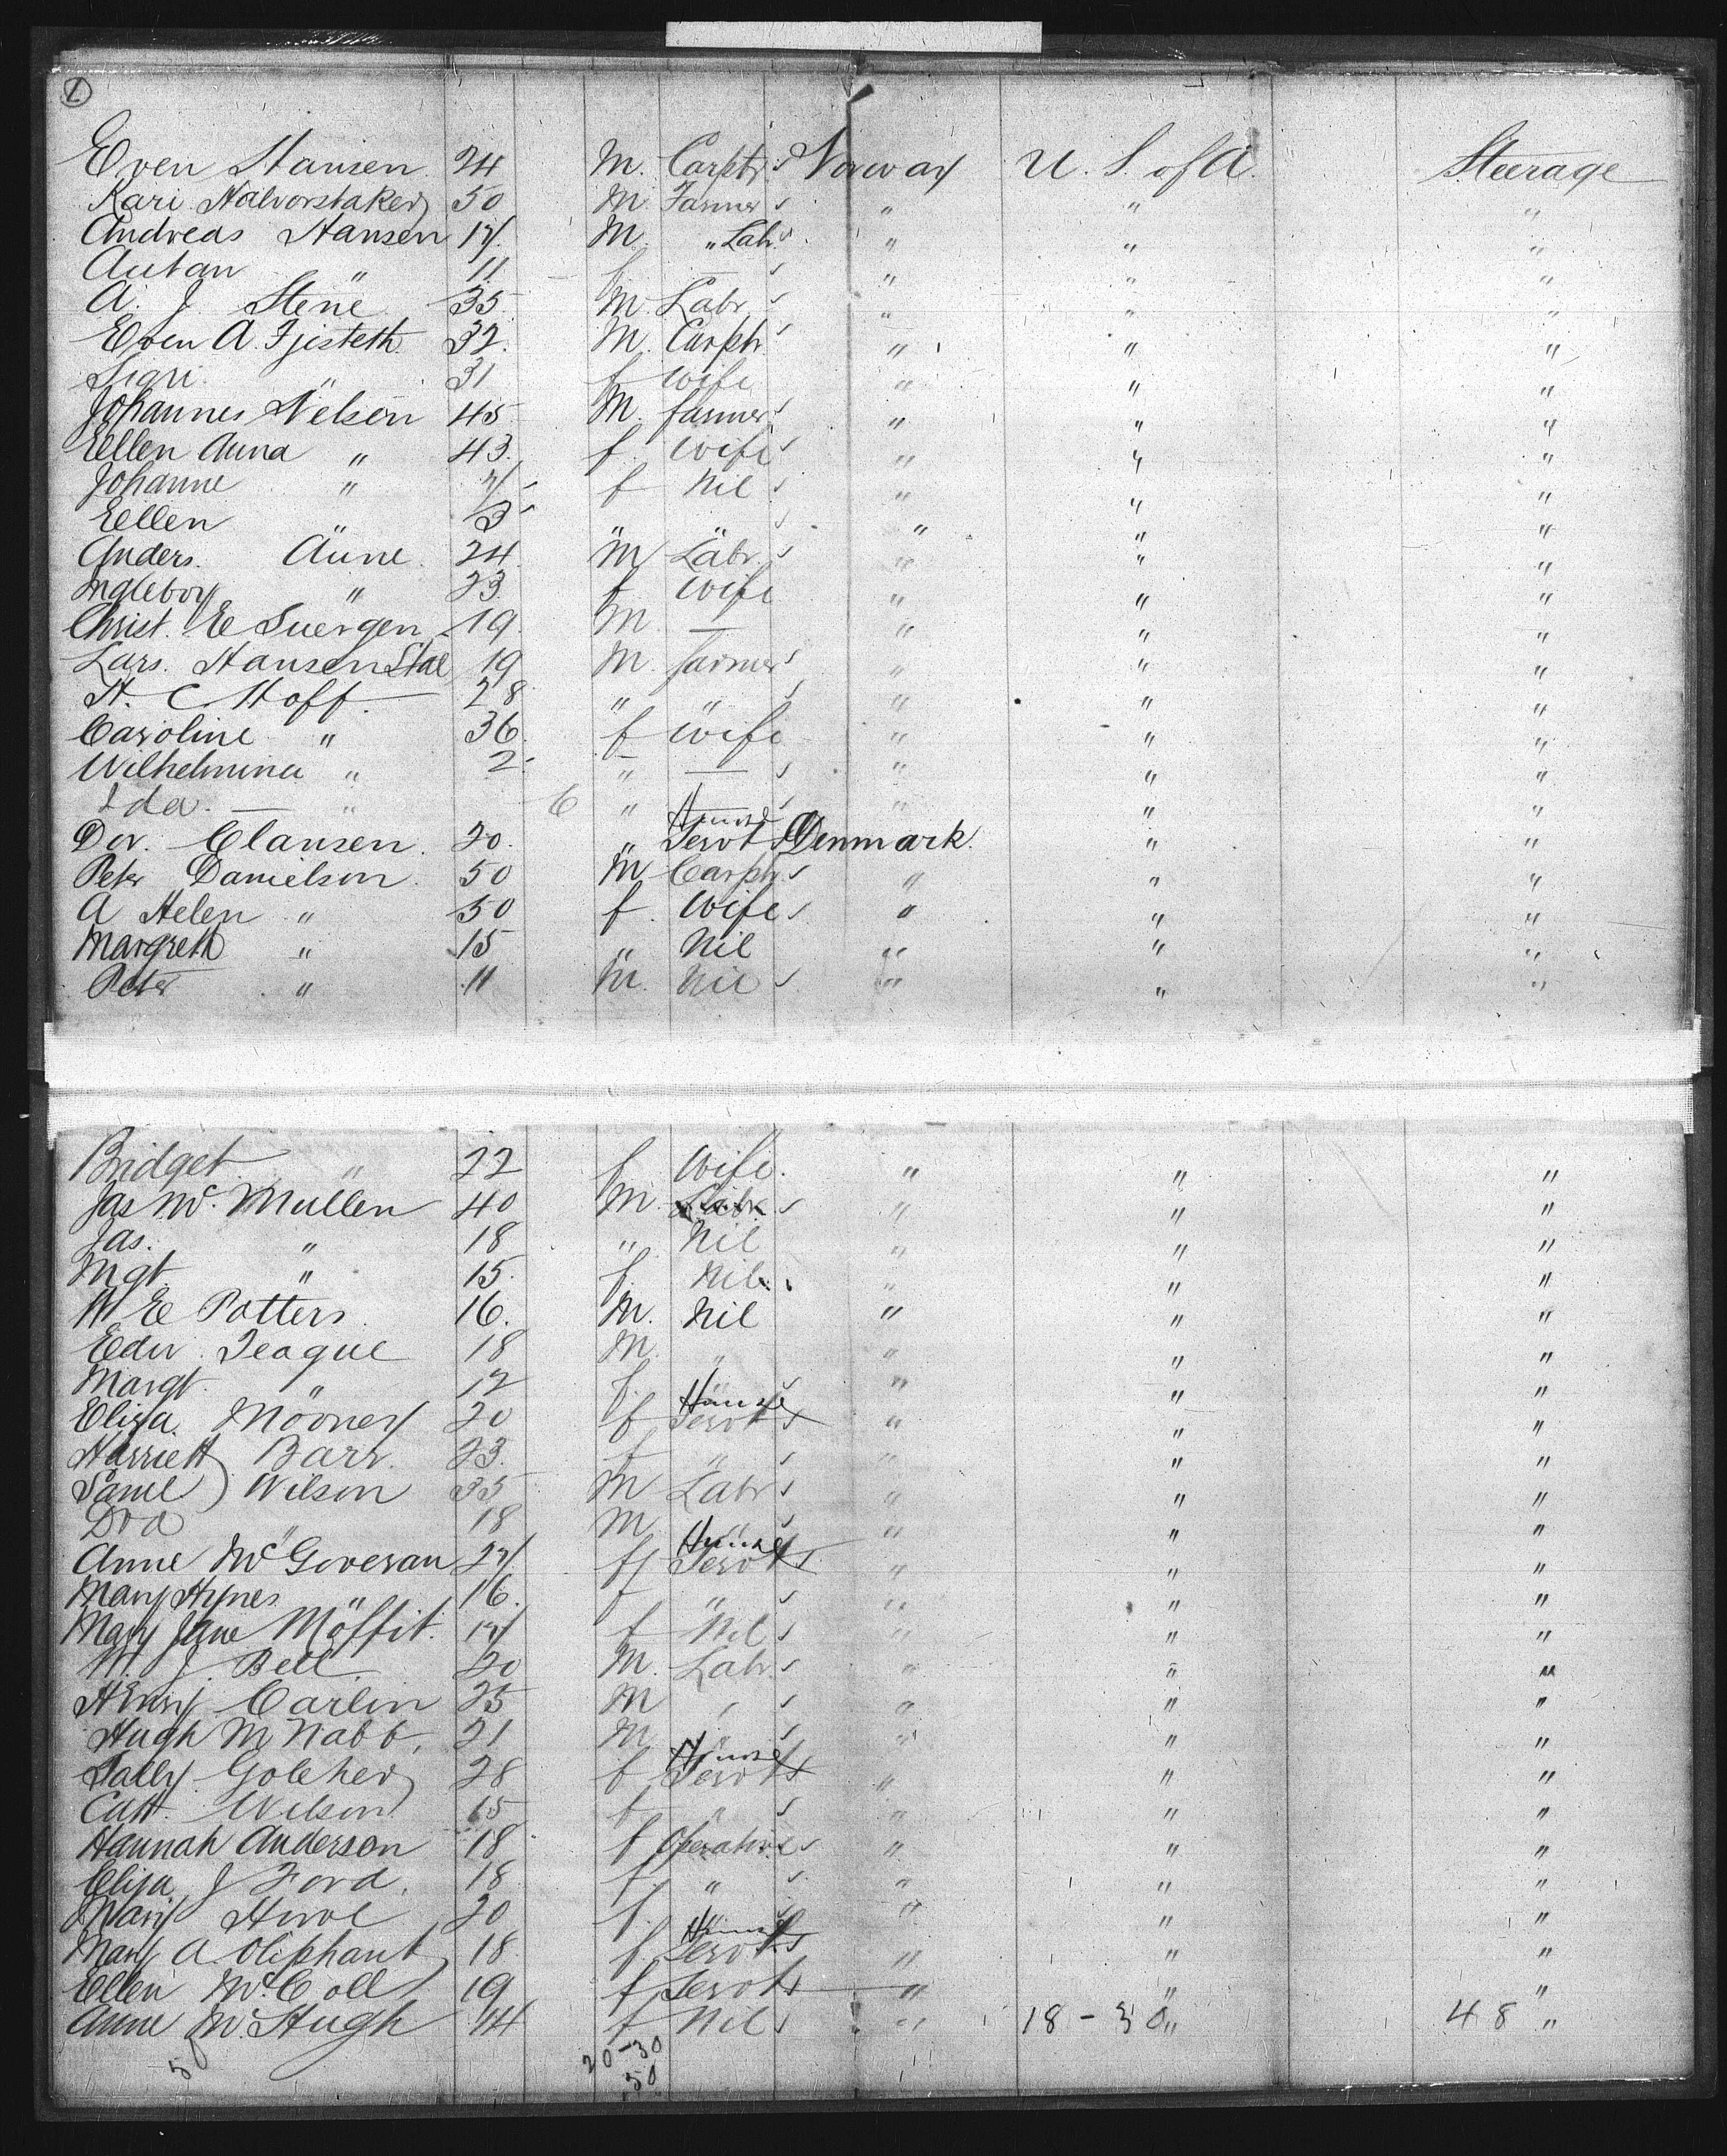 1
Even Hansen 24 M. Carptr s Norway U. S. of A. Steerage
Kari Halvorstaker 50 M. Farmer s " " "
Andreas Hansen 17. M. " Labr s " " "
" 11 f — s " " "
A. J. Stene 35 M Labr s " " "
Even A. Fjesteth 32. M. Carptr s " " "
Sigri " 31 f wife " " "
Johannes Nelsen 45 M. farmer s " " "
Ellen Anna " 43. f. wife s " " "
Johanne " 7 f Nil s " " "
Ellen " 3 " " s " " "
Anders. Aune 24. M Labr. s " " "
Ingleboy " 23. f wife " " "
Christ. E 19. M — " " "
Lars. Hansen Stal 19 M. farmer s " " "
H. C. Hoff 28 " " s " " "
Caroline " 36. f wife " " "
Wilhelmina " 2. " — s " " "
Ida. — " 6 " — s " " "
House
Dor. Clausen. 20. " Servt s Denmark. " "
Peter Danielson. 50 M Carptr s " " "
A Helen " 50 f. Wife s " " "
Margreth " 15 " Nil " " "
Peter " 11 M. Nil s " " "
Bridget " 22 f wife. " " "
Jas Mc. Mullen 40 M. Labr s " " "
Jas. " 18 " Nil " " "
Mgt. " 15. f. Nil. " " "
W E Potters 16. M. Nil " " "
Edw. Teague 18 M. " " " "
Margt. " 12 f. " s " " "
House
Eliza. Mooney 20 f Servt s " " "
Harriett Barr. 23. f " s " " "
Saml Wilson 35 M Labr s " " "
" 18 M " s " " "
House
Anne McGoveran 27 f Servt s " " "
Mary Hynes " 16. f " s " " "
Mary Jane Moffit. 17 f Nil s " " "
W. J. Bell. 20 M. Labr. s " " "
Henry Carlin 25 M " s " " "
Hugh McNabb, 21 M " s " " "
House
Sally Goleher 28 f Servt s " " "
Cath. Wilson 15 f " s " " "
Hannah Anderson 18 f Operative s " " "
Eliza J Ford. 18 f " s " " "
Mary 20 f. " s " " "
House
Mary A. Oliphant 18 f Servt. s " " "
Ellen McColl 19 f Servt s — " " "
Anne McHugh 14 f Nil s " 18 - 30 " 48 "
5 20-30
50